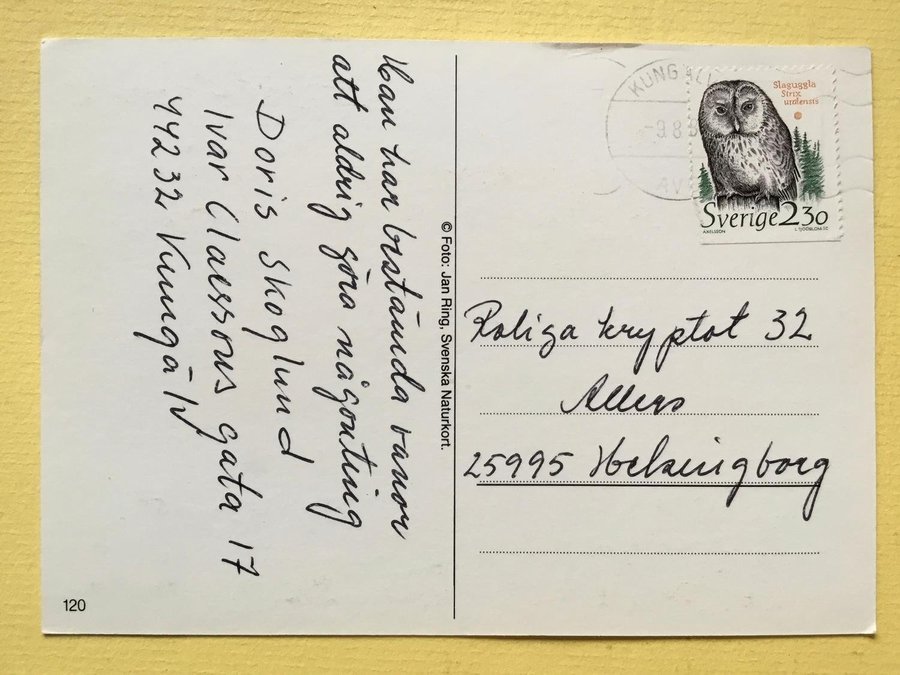 Han har bestämda vanor
att aldrig göra någonting
Doris Skoglund
Ivar Claessons gata 17
442 32 Kungälv
© Foto: Jan Ring, Svenska Naturkort.
120
KUNGÄLV
-9.8
AV
Slaguggla
Strix
uralensis
Sverige 2.30
AXELSSON
Roliga kryptot 32
Allers
25995 Helsingborg